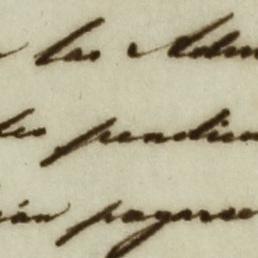 las Adm
les pendien
rán pagarse